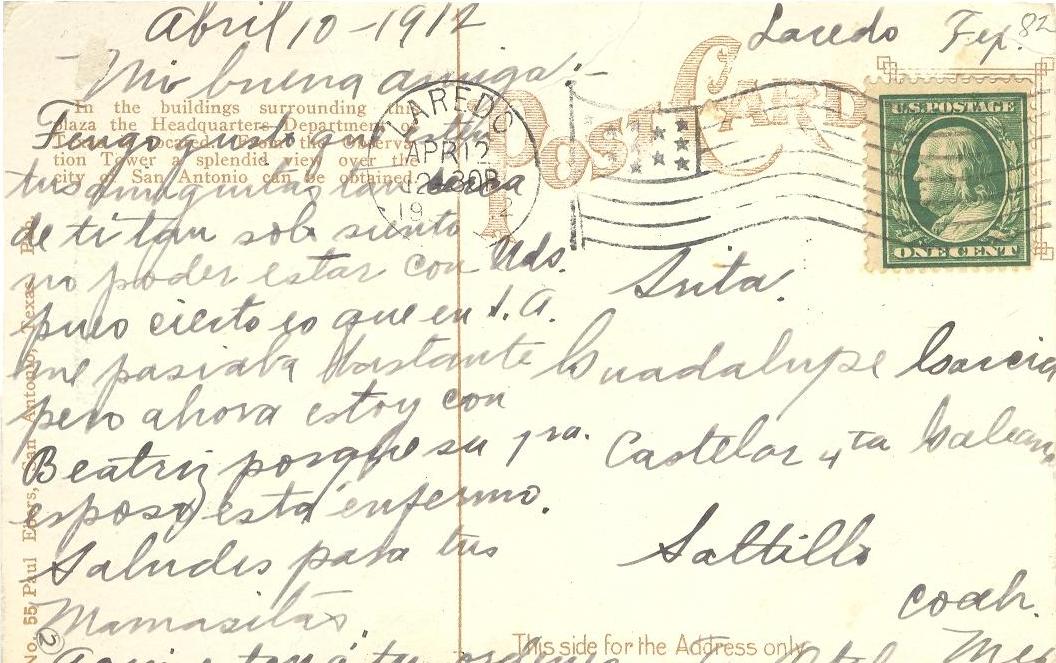 Abril 10 - 1912
Laredo Tex. 82
Mi buena amiga:-
In the buildings surrounding this
plaza the Headquarters Department
located. From the Observa-
tion Tower a splendid view over the
city of San Antonio can be obtained.
Tengo gusto
tus cerca
de ti tan solo siento
no poder estar con Uds.
pues cierto es que en S. A.
me pasiaba bastante
pero ahora estoy con
Beatriz porque su
esposo está enfermo.
Saludes para tus
Mamasitas
Aqui a tu
No. 55 Paul Ebers, San Antonio, Texas Pub.
2
POST CARD
LAREDO
APR 12
12 30P
1912
U.S. POSTAGE
ONE CENT
Srita.
Guadalupe Garcia
1ra. Castelar 4ta
Saltillo
Coah.
Mex
This side for the Address only